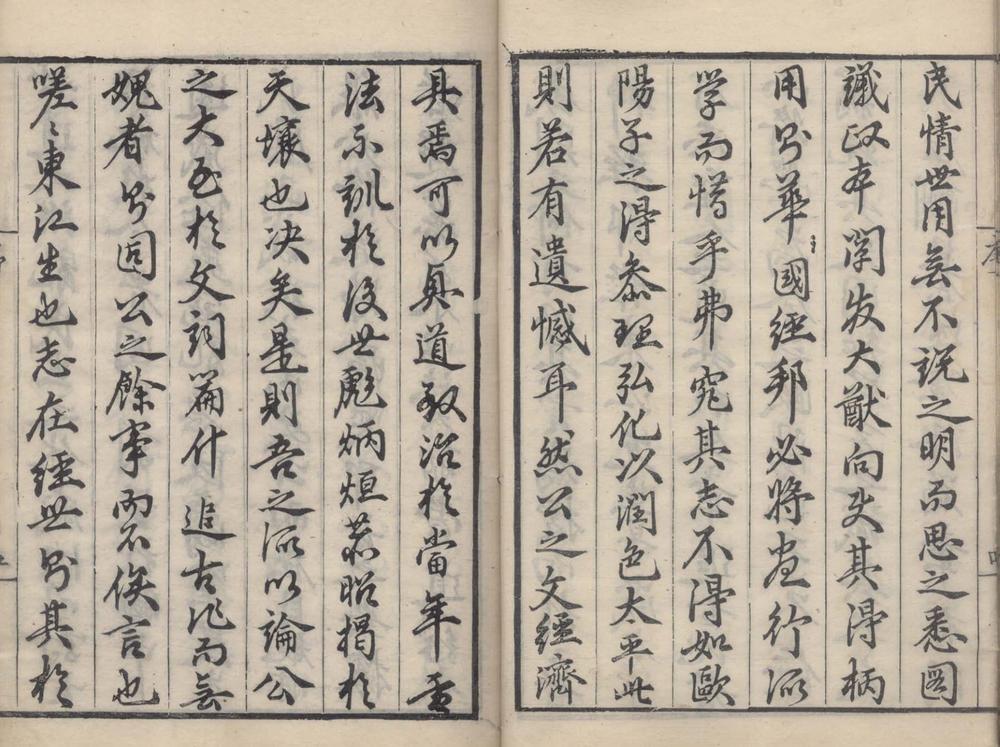 民情世用無不説之明而思之悉圖
議政本闡发大猷向使其得柄
用則華國經邦必將盡行所
学而惜乎弗究其志不得如歐
陽子之得参理弘化以潤色太平此
則若有遺憾耳然公之文經濟
具焉可以與道致治於當年垂
法示訓於後世彪炳烜赫昭揭於
天壤也决矣是則吾之所以論公
之大至於文詞篇什追古作而無
媿者則固公之餘事而不俟言也
嗟〻東江生也志在經世則其於